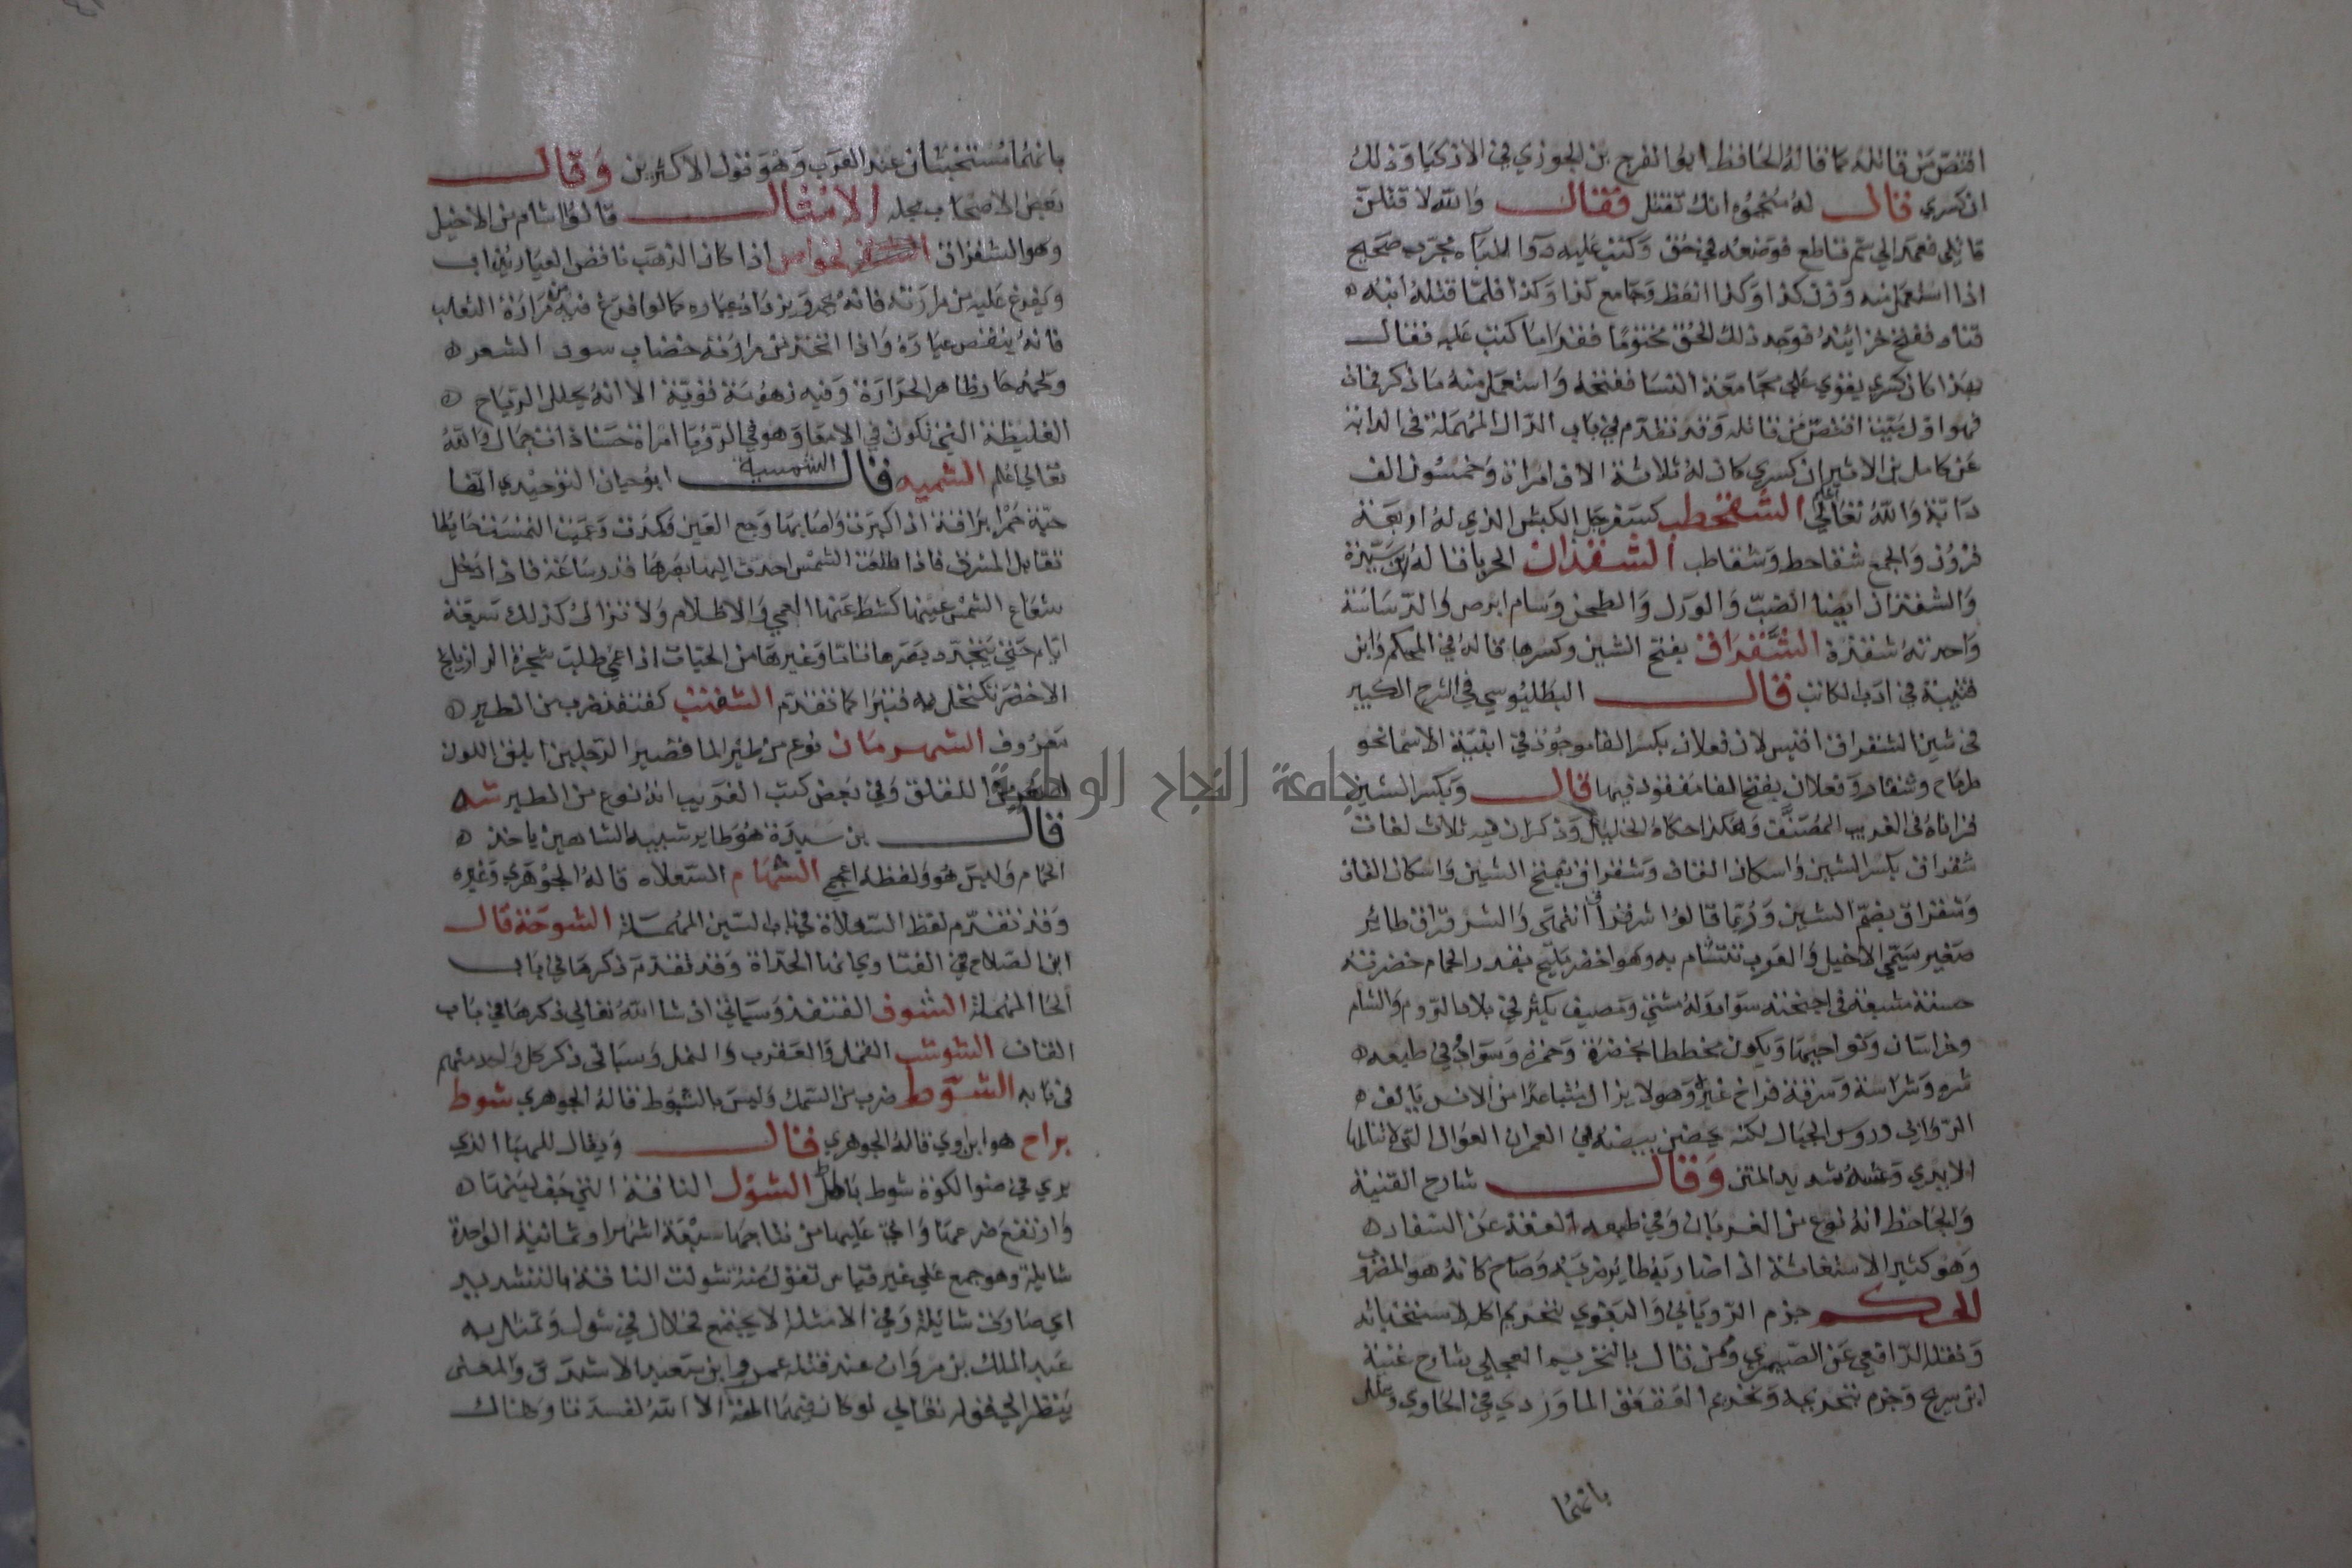 اقتص من قاتله كما قاله الحافظ ابي الفرج بن الجوزي في الاذكيا وذلك
ان كسري قال له منجموه انك تقتل فقال والله لاقتلن
قاتلي فعمد الي سم قاطع فوضعه في حق وكتب عليه دوا للباه مجرب صحيح
اذا استعمل منه وزن كذا وكذا انعظ وجامع كذا وكذا فلما قتله ابنه
قتاه ففتح خزاينه فوجد ذلك الحق مختوما فقرا ما كتب عليه فقال
بهذا كان كسري يقوي علي مجامعة النسا ففتحه واستعمل منه ما ذكر فمات
فهو اول ميت اقتص من قاتله وقد تقدم في باب الدال المهملة في الدابة
عن كامل بن الاثير ان كسري كان له ثلاثة الاف امراة وخمسون الف
دابة والله تعالي اعلم الشقحطب كسفرجل الكبش الذي له اربعة
قرون والجمع شقاحط وشقاطب الشقذان الحربا قاله ابن سيدة
والشقذان ايضا الضب والورل والطحن وسام ابرص والدساسة
واحدته شقذة الشقراق بفتح الشين وكسرها قاله في المحكم وابن
قتيبة في ادب الكاتب قال البطليوسي في الشرح الكبير
في شين الشقراق اقيس لان فعلان بكسر الفا موجود في ابنية الاسما نحو
طرماح وشنقار وفعلان بفتح الفا مفقود فيها قال وبكسر الشين
قراناه في الغريب المصنف وهكذا حكاه الخليل وذكر ان فيه ثلاث لغات
شقراق بكسر الشين واسكان القاف وشقراق بفتح الشين واسكان القاف
وشقراق بضم الشين وربما قالوا شرقراق انتهى والشرقراق طائر
صغير يسمي الاخيل والعرب تتشام به وهو اخضر مليح بقدر الحمام خضرته
حسنة مشبعة في اجنحته سواد وله مشتي ومصيف يكثر في بلاد الروم والشام
وخراسان ونواحيها ويكون مخططا بخضرة وحمرة وسواد وفي طبعه
شره وشراسة وسرقة فراخ غيره وهو لا يزال متباعدا من الانس يالف
الروابي وروس الجبال لكنه يحضن بيضه في العمران العوال التي لا تنالها
الايدي وعشه شديد النتن وقال شارح القنية
والجاحظ انه نوع من الغربان وفي طبعه العفة عن السفاد
وهو كثير الاستغاثة اذا ضاربه طائر ضربه وصاح كانه هو المضروب
الحكم جزم الروياني والبغوي بتحريم اكله لاستخباثه
ونقله الرافعي عن الصيمري وممن قال بالتحريم العجلي شارح غنية
ابن سريج وجزم بتحريمه وتحريم العقعق الماوردي في الحاوي وعلل
بانهما
بانهما مستخبثان عند العرب وهو قول الاكثرين وقال
بعض الاصحاب بحله الامثال قالوا اشام من الاخيل
وهو الشقراق الخواص اذا كان الذهب ناقص العيار يذاب
ويفرغ عليه من مرارته فانه يحمر ويزداد عياره كما لو افرغ فيه من مرارة الثعلب
فانه ينقص عياره واذا اتخذ من مرارته خضاب سود الشعر
ولحمه حار ظاهر الحرارة وفيه زهومة قوية الا انه يحلل الرياح
الغليظة التي تكون في الامعا وهو في الرؤيا امراة حسنا ذات جمال والله
تعالي اعلم الشمية الشمسية قال ابو حيان التوحيدي انها
حية حمرا براقة اذا كبرت واصابها وجع العين وكدت وعميت التمست حايطا
تقابل المشرق فاذا طلعت الشمس احدت اليها بصرها قدر ساعة فاذا دخل
شعاع الشمس عينها كشط عنها العمي والاظلام ولا تزال كذلك سبعة
ايام حتي يتجرد بصرها تاما وغيرها من الحيات اذا عمي طلب شجرة الرازيانج
الاخضر تكتحل به فتبرا كما تقدم الشقنب كقنفذ ضرب من الطير
معروف الشهرمان نوع من طير الما قصير الرجلين ابلق اللون
اصغر من اللقلق وفي بعض كتب الغريب انه نوع من الطير شه
قال بن سيدة هو طاير شبيه الشاهين ياخذ
الحمام وليس هو ولفظه اعجمي الشهام السعلاه قاله الجوهري وغيره
وقد تقدم لفظ السعلاة في باب السين المهملة الشوحة قال
ابن الصلاح في الفتاوي انها الحداة وقد تقدم ذكرها في باب
الحا المهملة الشوف القنفذ وسياتي ان شا الله تعالي ذكرها في باب
القاف الشوشب القمل والعقرب والنمل وسياتي ذكر كل واحد منهم
في بابه الشوط ضرب من السمك وليس بالشبوط قاله الجوهري شوط
براح هو ابن اوي قاله الجوهري قال ويقال للهبا الذي
يري في ضو الكوة شوط باطل الشول الناقة التي خف لبنها
وارتفع ضرعها واتي عليها من نتاجها سبعة اشهر او ثمانية الواحدة
شايلة وهو جمع علي غير قياس تقول منه شولت الناقة بالتشديد
اي صارت شائلة وفي الامثلة لا يجتمع فحلان في شول وتمثل به
عبد الملك بن مروان عند قتله عمرو ابن سعيد الاشدق والمعنى
ينظر الي قوله تعالي لو كان فيهما الهة الا الله لفسدتا وهناك
جامعة النجاح الوطنية